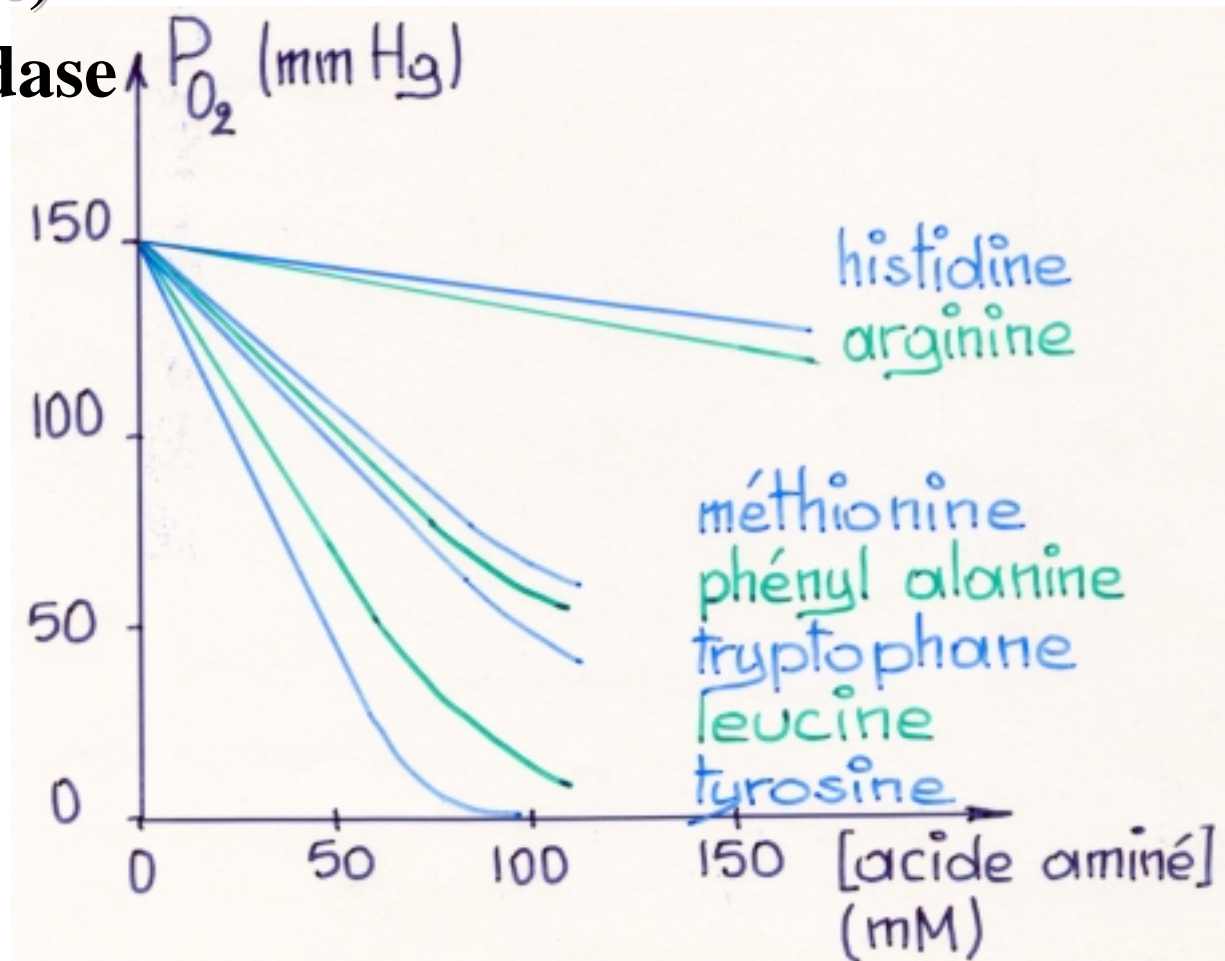 dase
P O2 (mm Hg)
150
100
50
0
histidine
arginine
méthionine
phényl alanine
tryptophane
leucine
tyrosine
0 50 100 150 [acide aminé]
(mM)